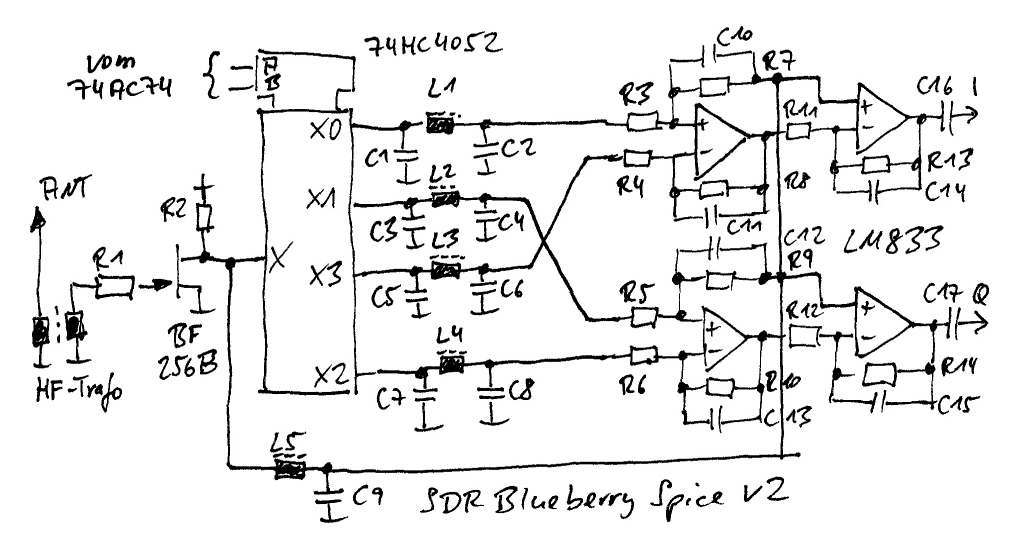 74HC4052
vom
74AC74
A
B
ANT
R1
R2
BF
256B
HF-Trafo
X
X0
X1
X3
X2
C1
L1
C2
C3
L2
C4
C5
L3
C6
C7
L4
C8
L5
C9
R3
R4
R5
R6
C10
R7
+
-
R8
C11
C12
R9
+
-
R10
C13
R11
+
-
R13
C14
C16 I
LM833
R12
+
-
R14
C15
C17 Q
SDR Blueberry Spice V2